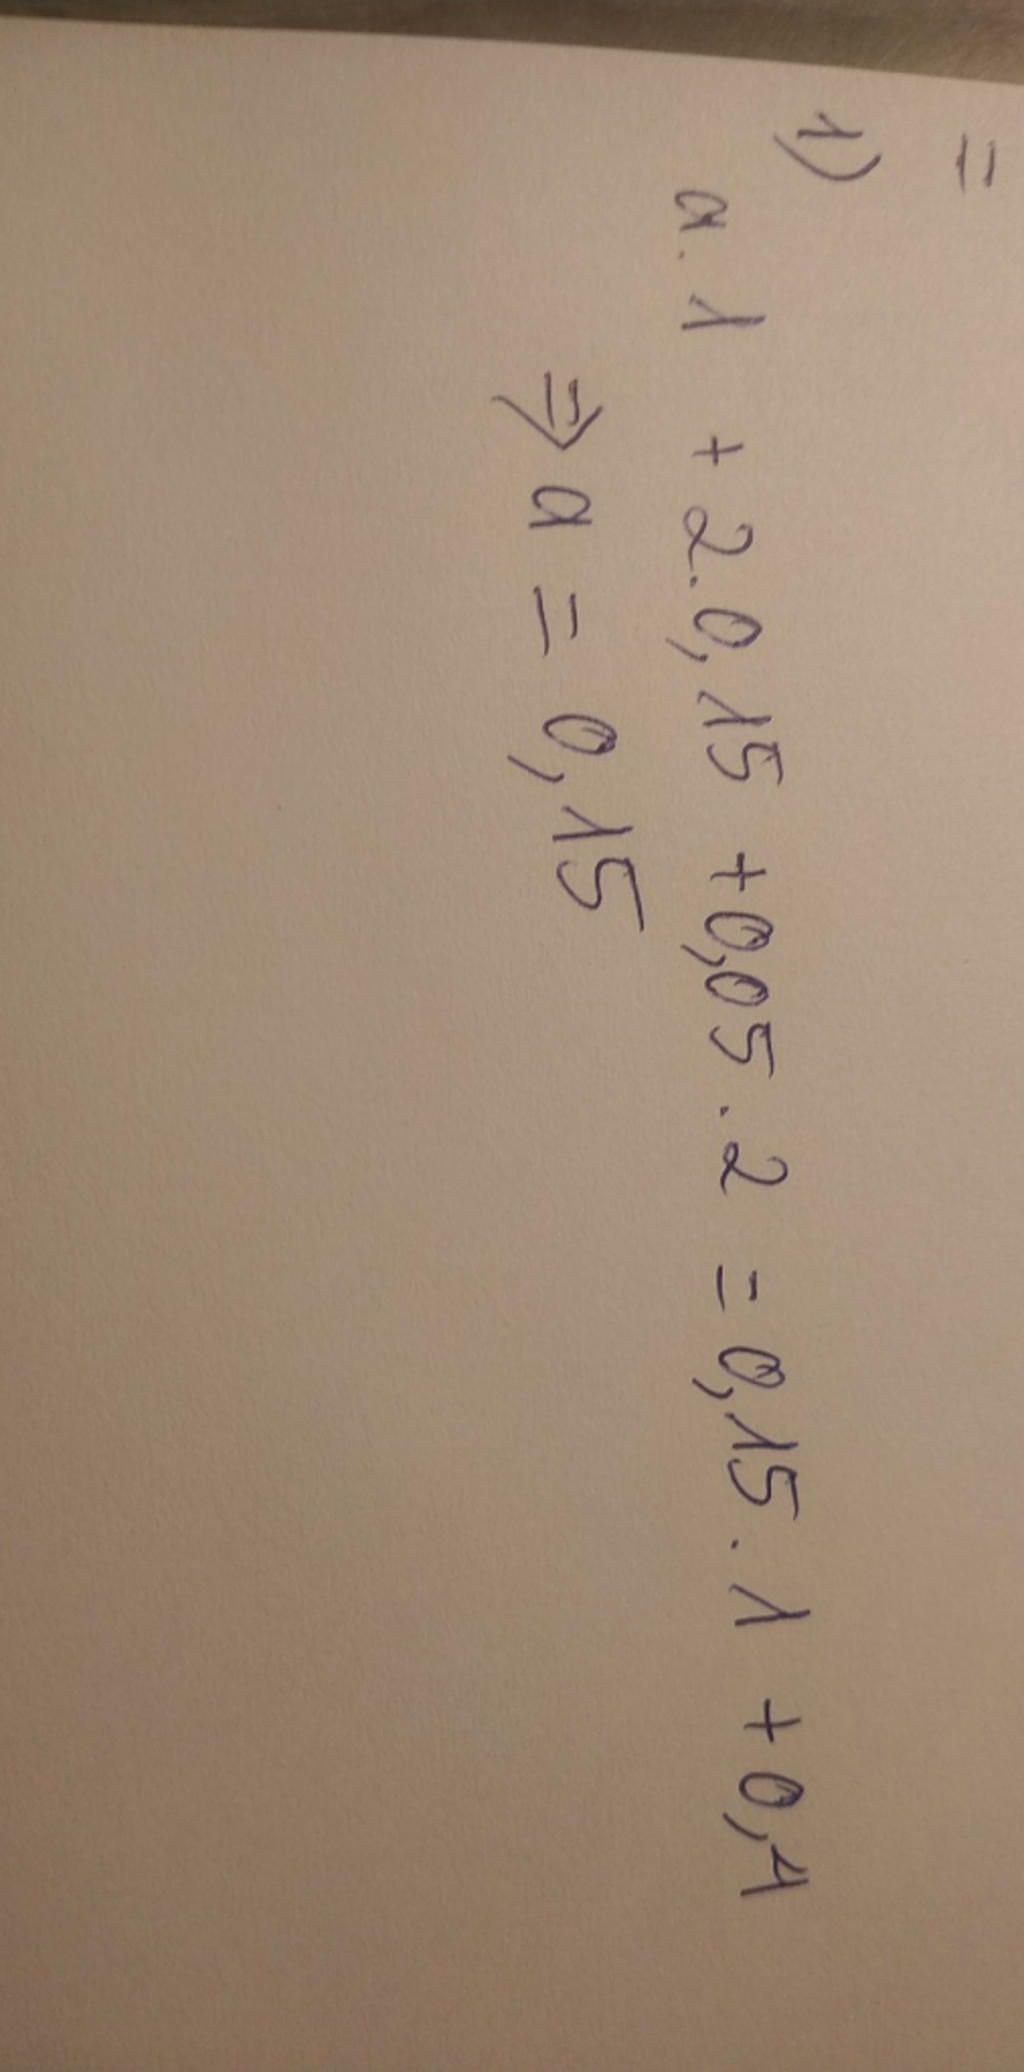 =
1)
a.1 + 2.0,15 + 0,05.2 = 0,15.1 + 0,4
⇒ a = 0,15